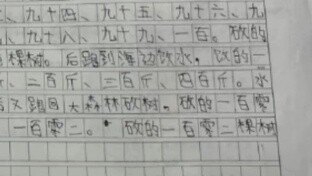 、九十四、九十五、九十六、九
、九十八、九十九、一百。砍的
棵树。后跑到海边饮水，饮的一
斤、二百斤、三百斤、四百斤。水
又跑回大森林砍树。砍的一百零
一百零二。砍的一百零二棵树